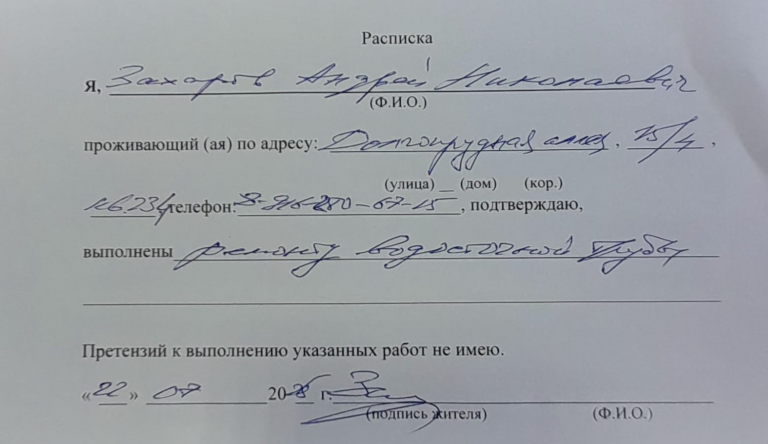 Расписка
Я, Захаров Андрей Николаевич
(Ф.И.О.)
проживающий (ая) по адресу: Долгопрудная аллея, 15/4,
(улица) __ (дом) (кор.)
кв.234 телефон: 8-916-280-67-15, подтверждаю,
выполнены ремонту водосточной трубы
Претензий к выполнению указанных работ не имею.
«22» 07 20 г.
(подпись жителя) (Ф.И.О.)